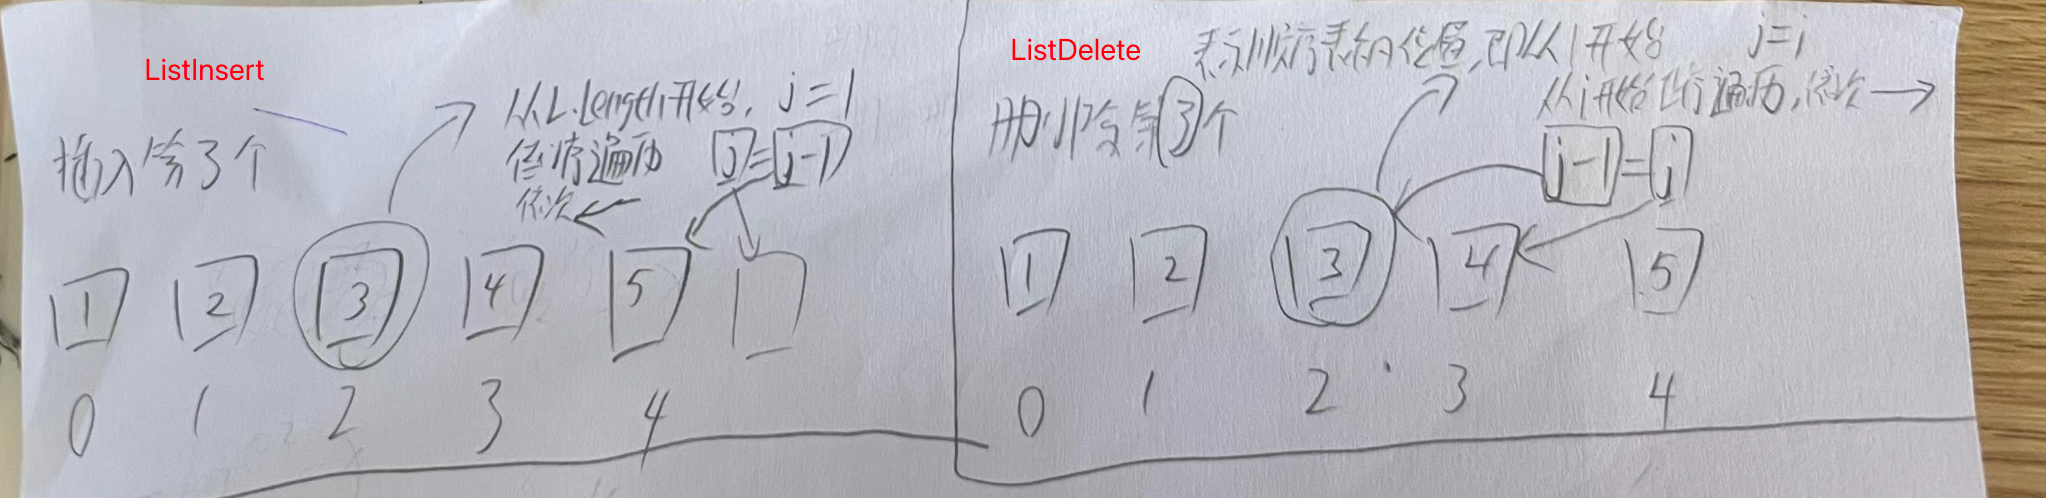 ListInsert
插入第3个
从L.length开始, j=1
倒序遍历 j=j-1
依次←
1 2 3 4 5
0 1 2 3 4
ListDelete
表示顺序表的位置,即从1开始 j=i
删除第3个
从i开始进行遍历,依次→
j-1=j
1 2 3 4 5
0 1 2 3 4